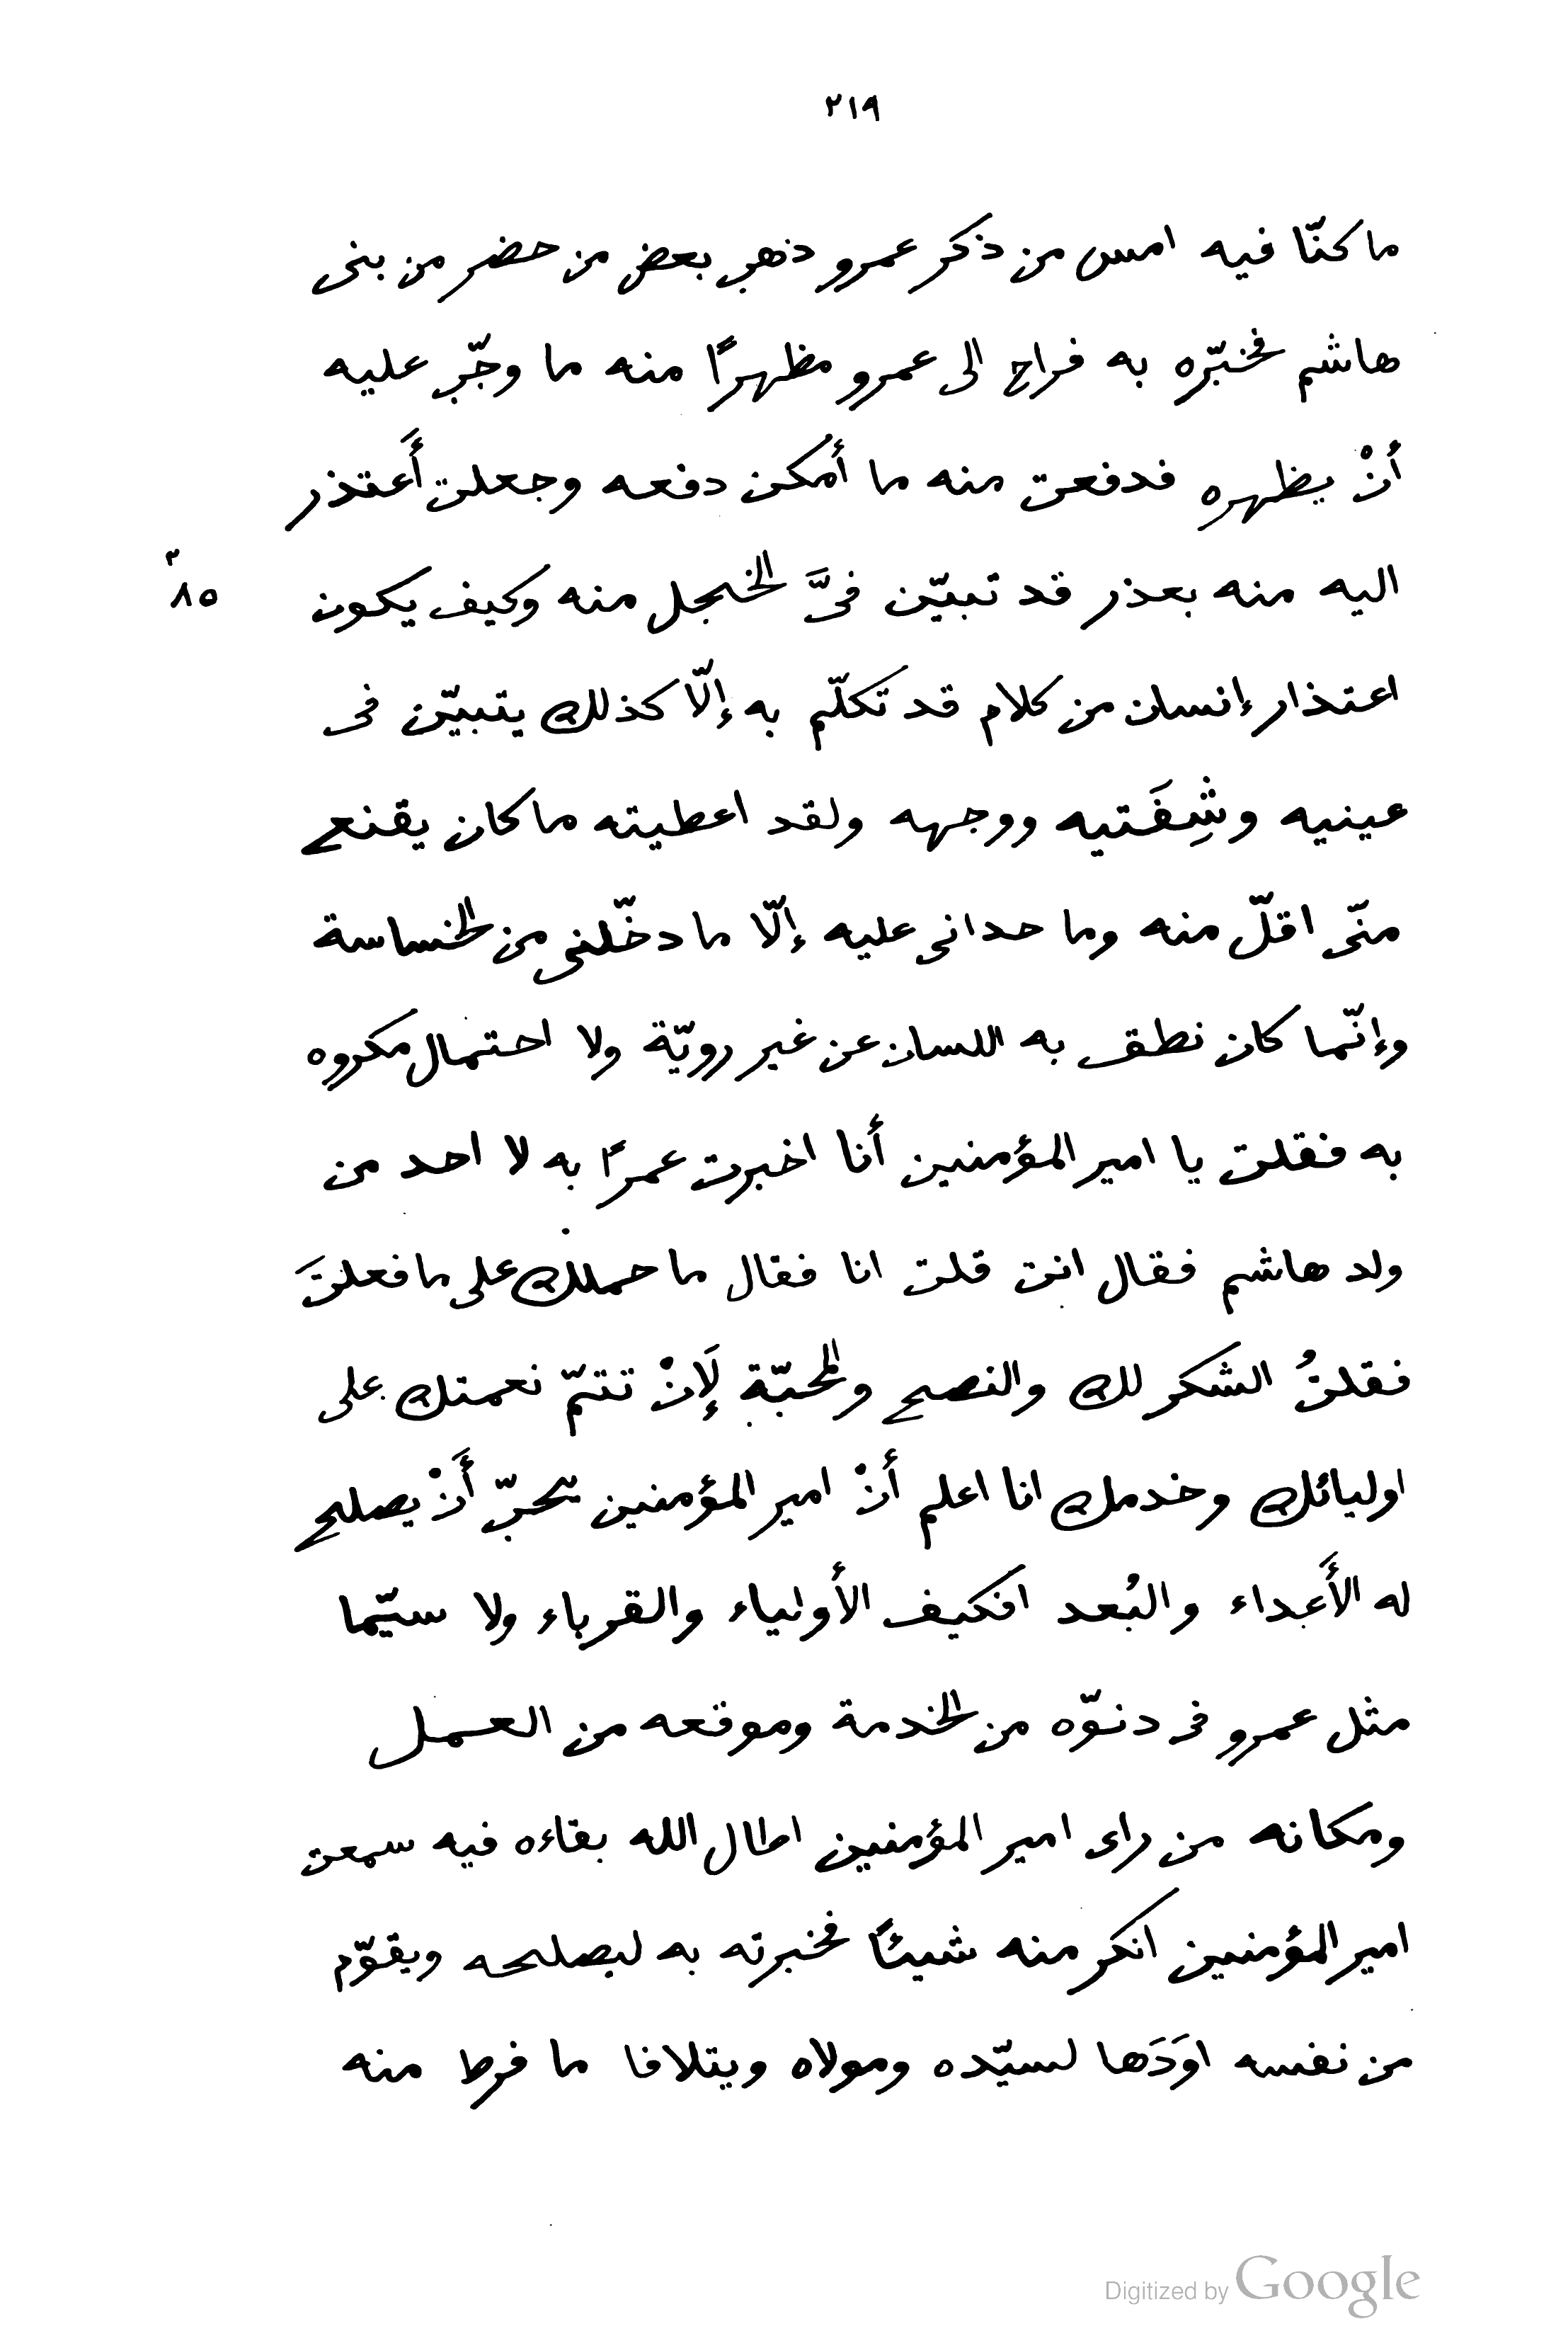 ٢١٩
ما كنّا فيه امس من ذكر عمرو ذهب بعض من حضر من بنى
هاشم فخبّره به فراح الى عمرو مظهرًا منه ما وجّب عليه
أنْ يظهره فدفعت منه ما أمكن دفعه وجعلت أَعتذر
اليه منه بعذر قد تبيّن فىَّ الخجل منه وكيف يكون
٨٥
اعتذار إنسان من كلام قد تكلّم به إلّا كذلك يتبيّن فى
عينيه وشِفَتيه ووجهه ولقد اعطيته ما كان يقنع
منّى اقلّ منه وما حدانى عليه إلّا ما دخّلنى من الخساسة
وإنّما كان نطق به اللسان عن غير رويّة ولا احتمال مكروه
به فقلت يا امير المؤمنين أنا اخبرت عمرًا به لا احد من
ولد هاشم فقال انت قلت انا فقال ما حملك على ما فعلتَ
فقلتُ الشكر لك والنصح والمحبّة لَإنْ تتمّ نعمتك على
اوليائك وخدمك انا اعلم أنْ امير المؤمنين يحبّ أَنْ يصلح
له الأَعداء والبُعد افكيف الأولياء والقرباء ولا سيّما
مثل عمرو فى دنوّه من الخدمة وموقعه من العمل
ومكانه من راى امير المؤمنين اطال الله بقاءه فيه سمعت
امير المؤمنين انكر منه شيئًا فخبرته به ليصلحه ويقوّم
من نفسه اوَدَها لسيّده ومولاه ويتلافا ما فرط منه
Digitized by Google